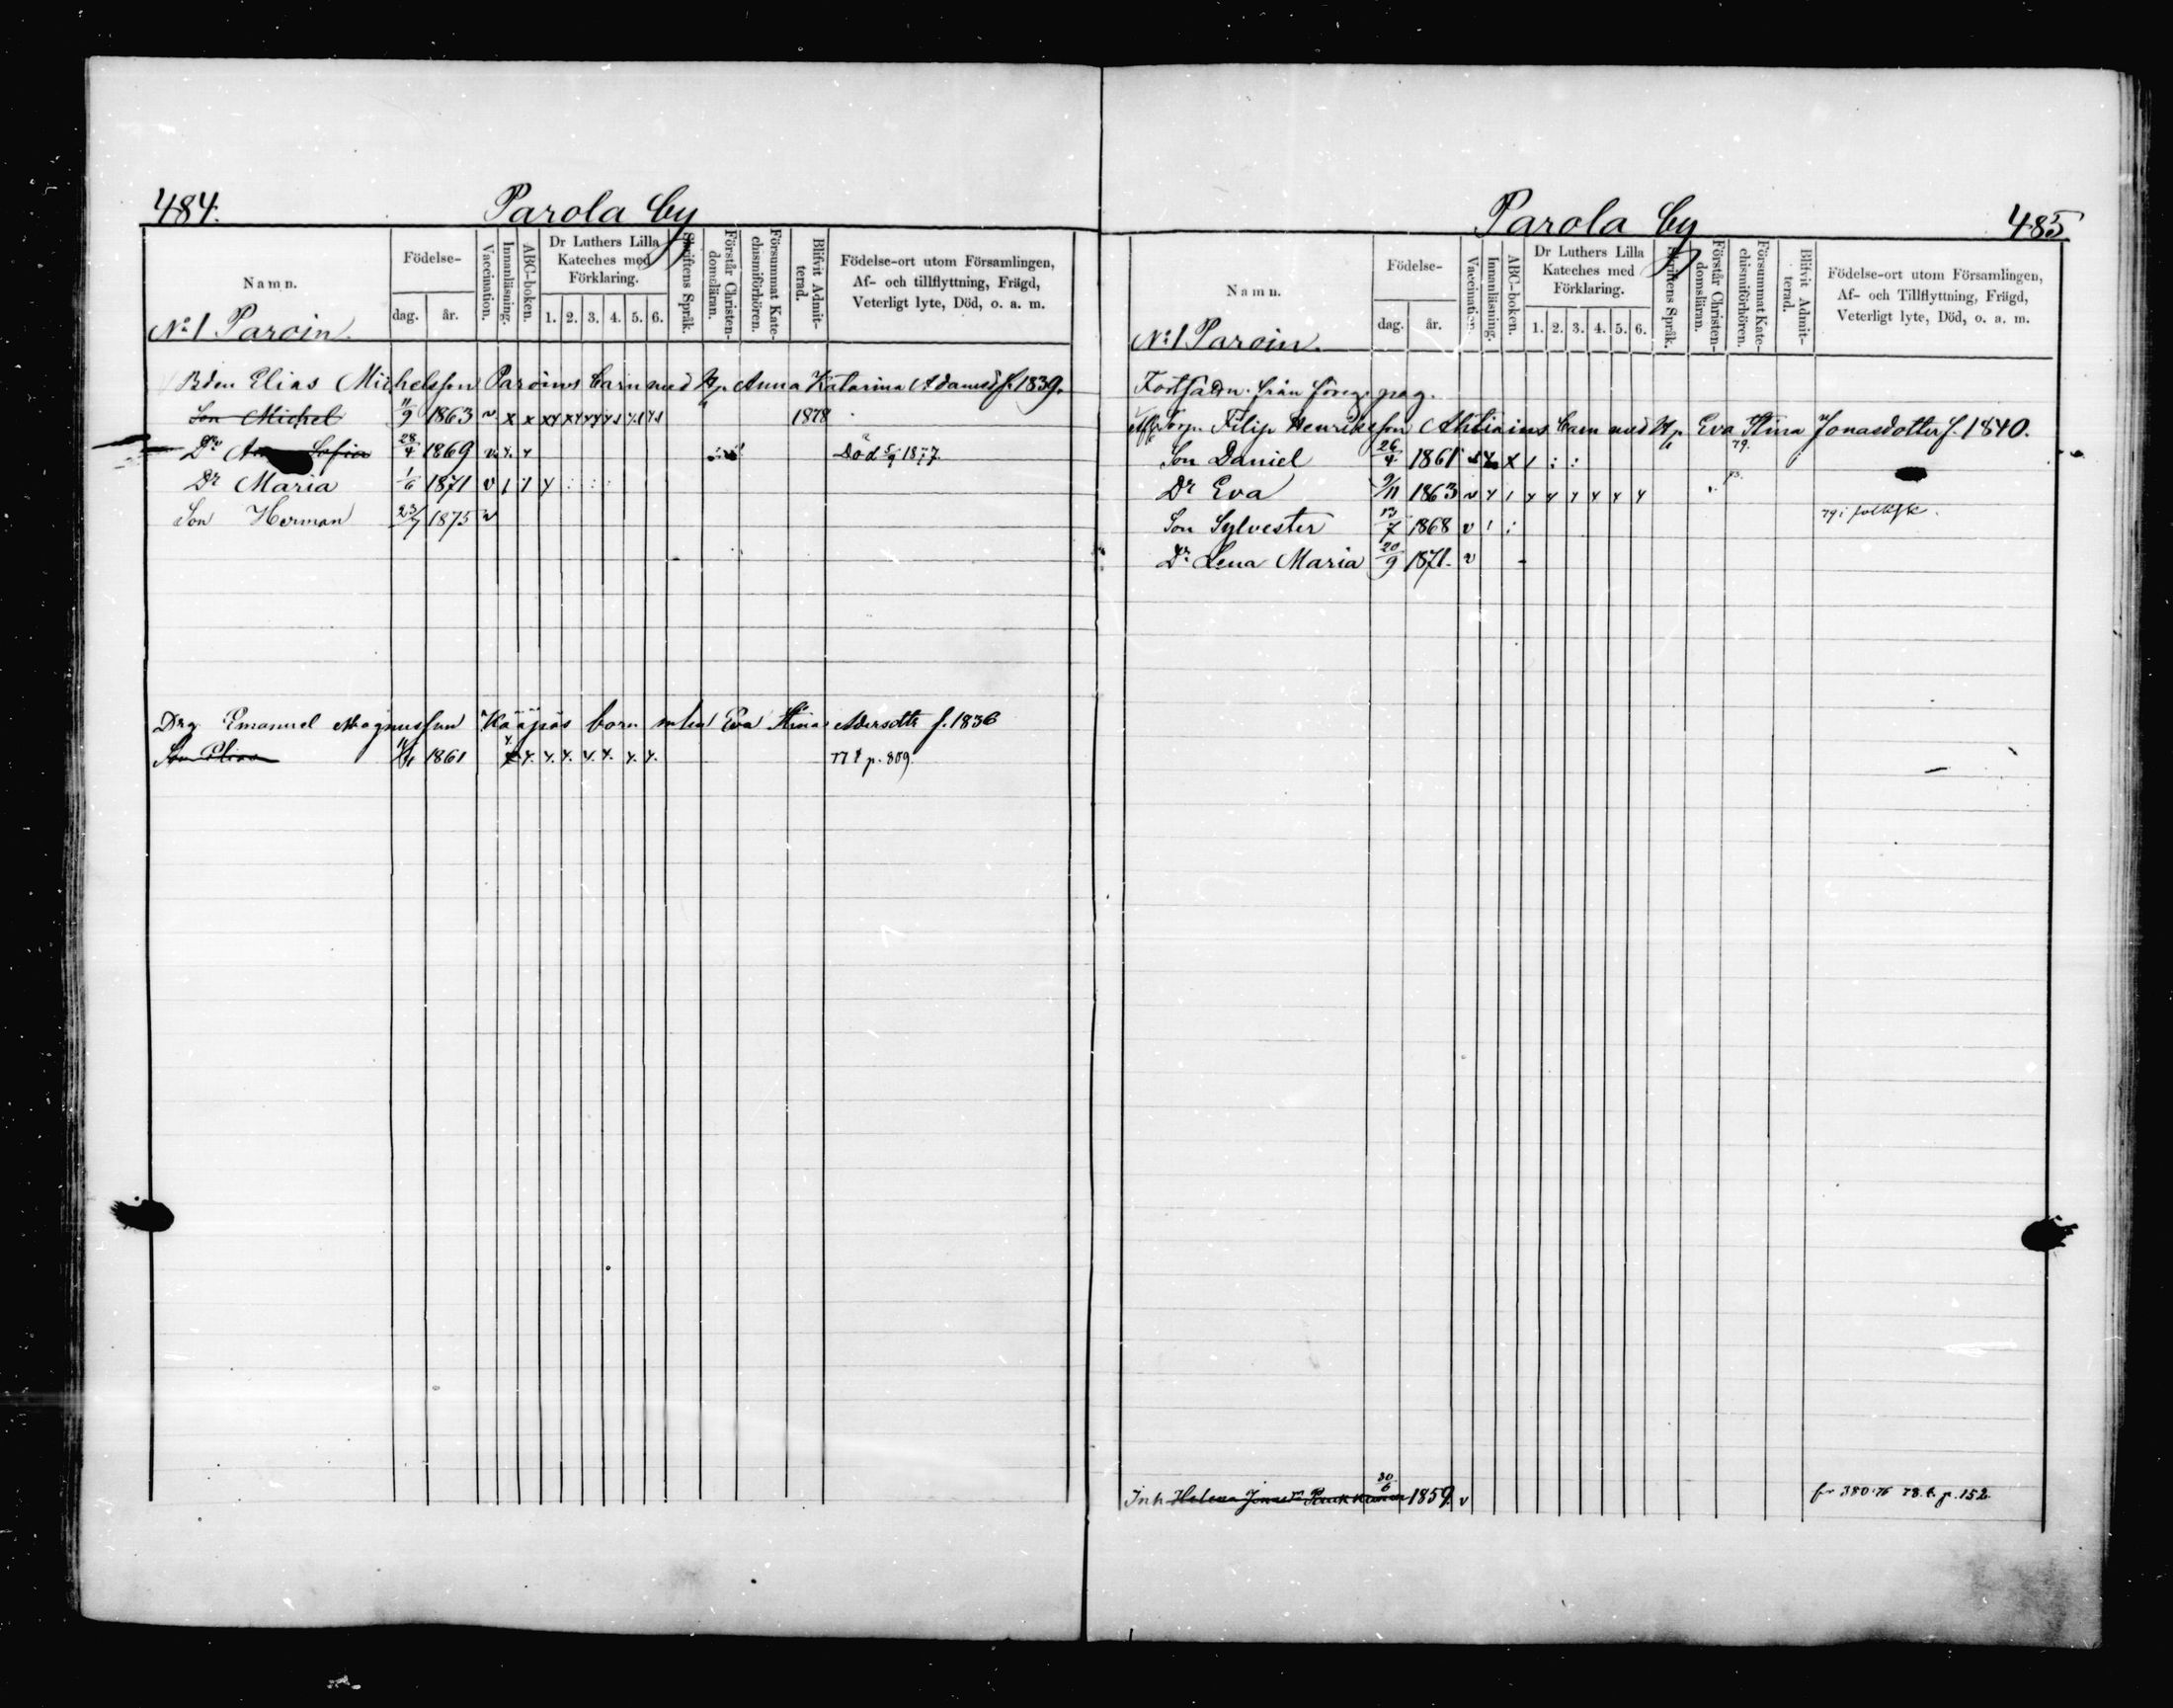 484.
Parola by
Namn.
Födelse-
dag.
år.
Vaccination.
Innanläsning.
ABC-boken.
Dr Luthers Lilla
Kateches med
Förklaring.
1. 2. 3. 4. 5. 6.
Skriftens Språk.
Förstår Christen-
domsläran.
Försummat Kate-
chismiförhören.
Blifvit Admit-
terad.
Födelse-ort utom Församlingen,
Af- och tillflyttning, Frägd,
Veterligt lyte, Död, o. a. m.
No 1 Paroin.
Bden Elias Michelsson Paroins barn med Hu Anna Katarina Adamsd f. 1839.
Son Michel 11/9 1863 v x x 1878
Dr Sofia 28/4 1869 v Död 5/9 1877.
Dr Maria 1/6 1871 v
Son Herman 23/7 1875 v
Drg Emanuel Magnusson Kääpäs barn m hu Eva Stina Adersdtr f. 1836
Son Elias 1861 77 t p. 809.
Parola by
485
Namn.
Födelse-
dag.
år.
Vaccination.
Innanläsning.
ABC-boken.
Dr Luthers Lilla
Kateches med
Förklaring.
1. 2. 3. 4. 5. 6.
Skriftens Språk.
Förstår Christen-
domsläran.
Försummat Kate-
chismiförhören.
Blifvit Admit-
terad.
Födelse-ort utom Församlingen,
Af- och Tillflyttning, Frägd,
Veterligt lyte, Död, o. a. m.
No 1 Paroin.
Fortsättn. från föreg. pag.
Torp. Filip Henriksson Ahtiains barn med Hu Eva Stina Jonasdotter f. 1840.
Son Daniel 26/4 1861 79.
Dr Eva 9/11 1863 v
Son Sylvester 13/7 1868 v 79 i folksk.
Dr Lena Maria 20/9 1871. v
Inh Helena Jonasdr 30/6 1859 v fr 380.76 78. t. p. 152.